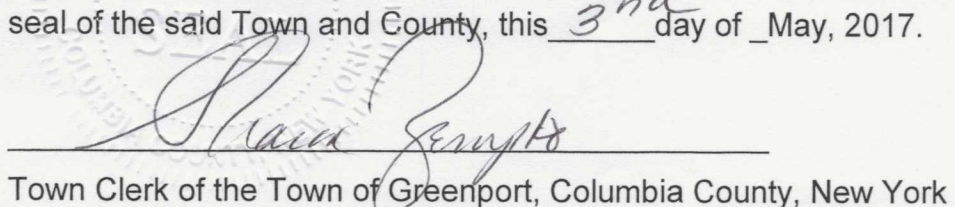 seal of the said Town and County, this 3nd day of _May, 2017.
Town Clerk of the Town of Greenport, Columbia County, New York
COLUMBIA COUNTY NEW YORK